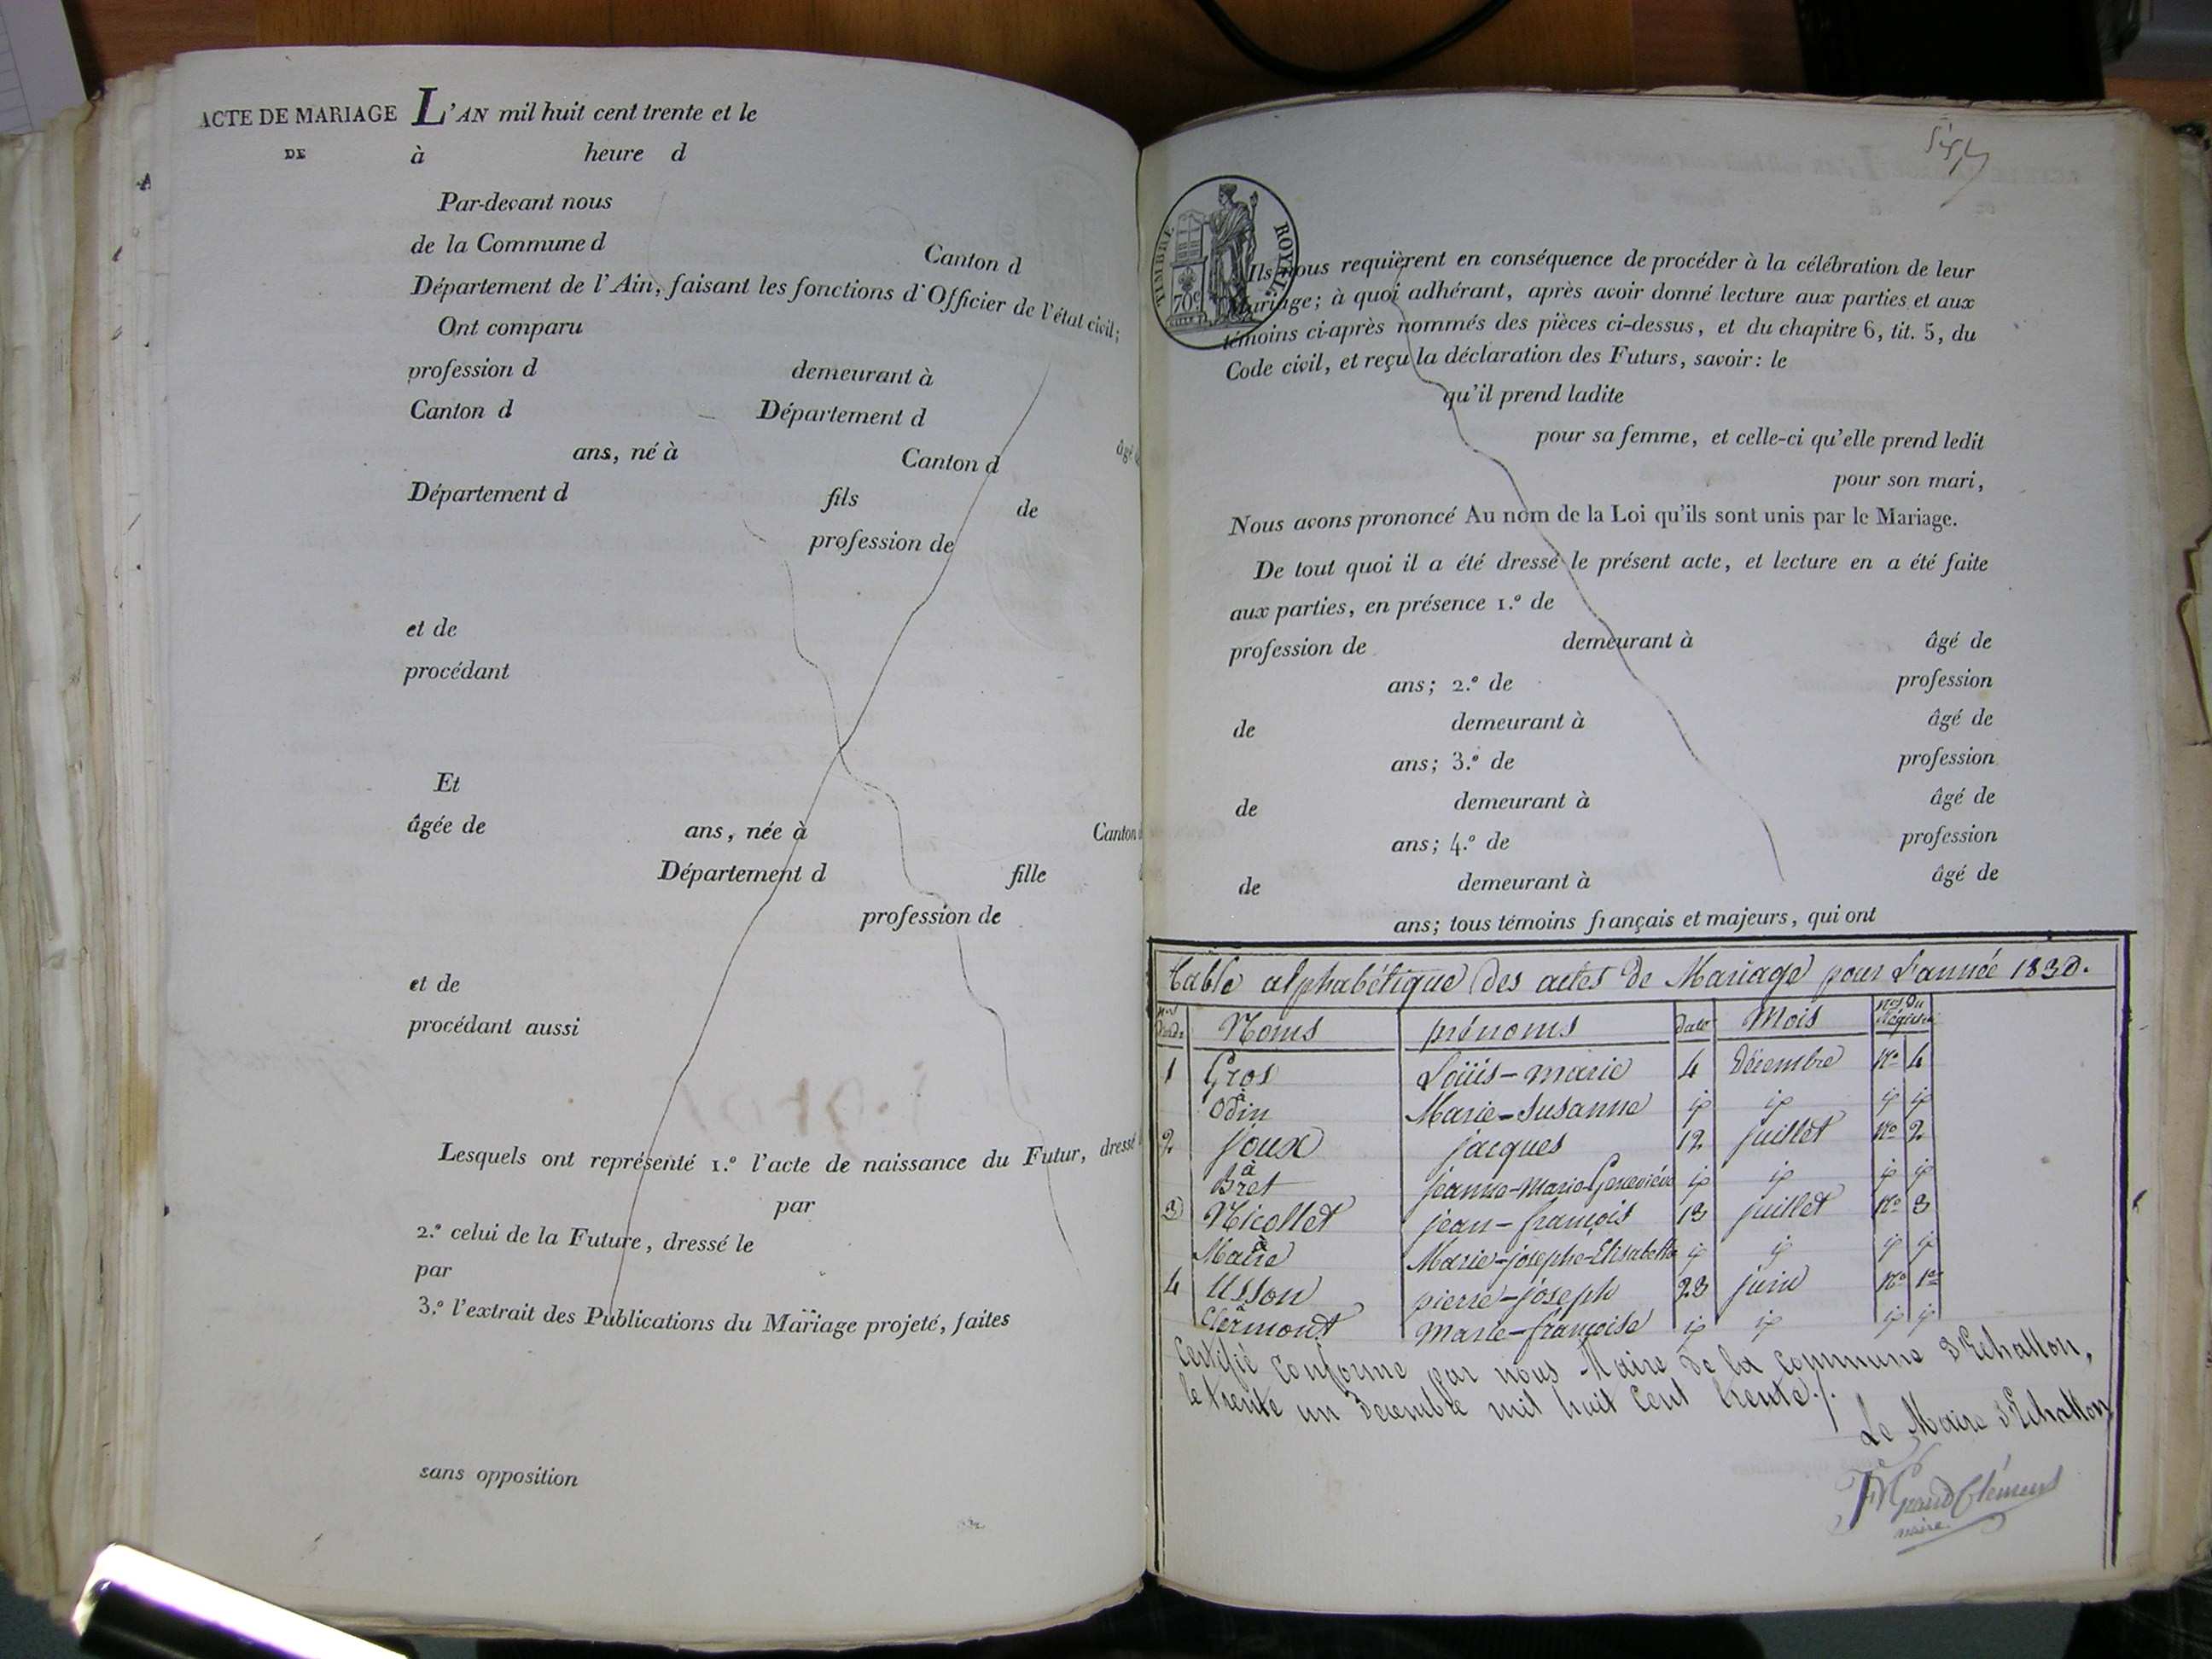 ACTE DE MARIAGE L'AN mil huit cent trente et le
DE à heure d
Par-devant nous
de la Commune d Canton d
Département de l'Ain, faisant les fonctions d'Officier de l'état civil;
Ont comparu
profession d demeurant à
Canton d Département d
âgé
ans, né à Canton d
Département d fils de
profession de
et de
procédant
Et
âgée de ans, née à Canton
Département d fille
profession de
et de
procédant aussi
Lesquels ont représenté 1.º l'acte de naissance du Futur, dressé
par
2.º celui de la Future, dressé le
par
3.º l'extrait des Publications du Mariage projeté, faites
sans opposition
TIMBRE ROYAL
70c
Ils nous requièrent en conséquence de procéder à la célébration de leur
Mariage; à quoi adhérant, après avoir donné lecture aux parties et aux
témoins ci-après nommés des pièces ci-dessus, et du chapitre 6, tit. 5, du
Code civil, et reçu la déclaration des Futurs, savoir: le
qu'il prend ladite
pour sa femme, et celle-ci qu'elle prend ledit
pour son mari,
Nous avons prononcé Au nom de la Loi qu'ils sont unis par le Mariage.
De tout quoi il a été dressé le présent acte, et lecture en a été faite
aux parties, en présence 1.º de
profession de demeurant à âgé de
ans; 2.º de profession
de demeurant à âgé de
ans; 3.º de profession
de demeurant à âgé de
ans; 4.º de profession
de demeurant à âgé de
ans; tous témoins français et majeurs, qui ont
Table alphabétique des actes de Mariage pour l'année 1830.
Noms prénoms date Mois nos du Régistre
1 Gros Loüis-marie 4 Décembre No 4
à
Odin Marie-Susanne id id id id
2 Joux jacques 12 juillet No 2
à
Bret jeanne-Marie-Geneviève id id id id
3 Nicollet jean-françois 13 juillet No 3
à
Maire Marie-josephe-Elisabeth id id id id
4 Usson pierre-joseph 23 juin No 1er
à
Clermont Marie-françoise id id id id
Certifié conforme par nous Maire de la commune d'Echallon,
le trente un Decembre mil huit Cent trente./.
Le Maire d'Echallon
Grand Clément
maire